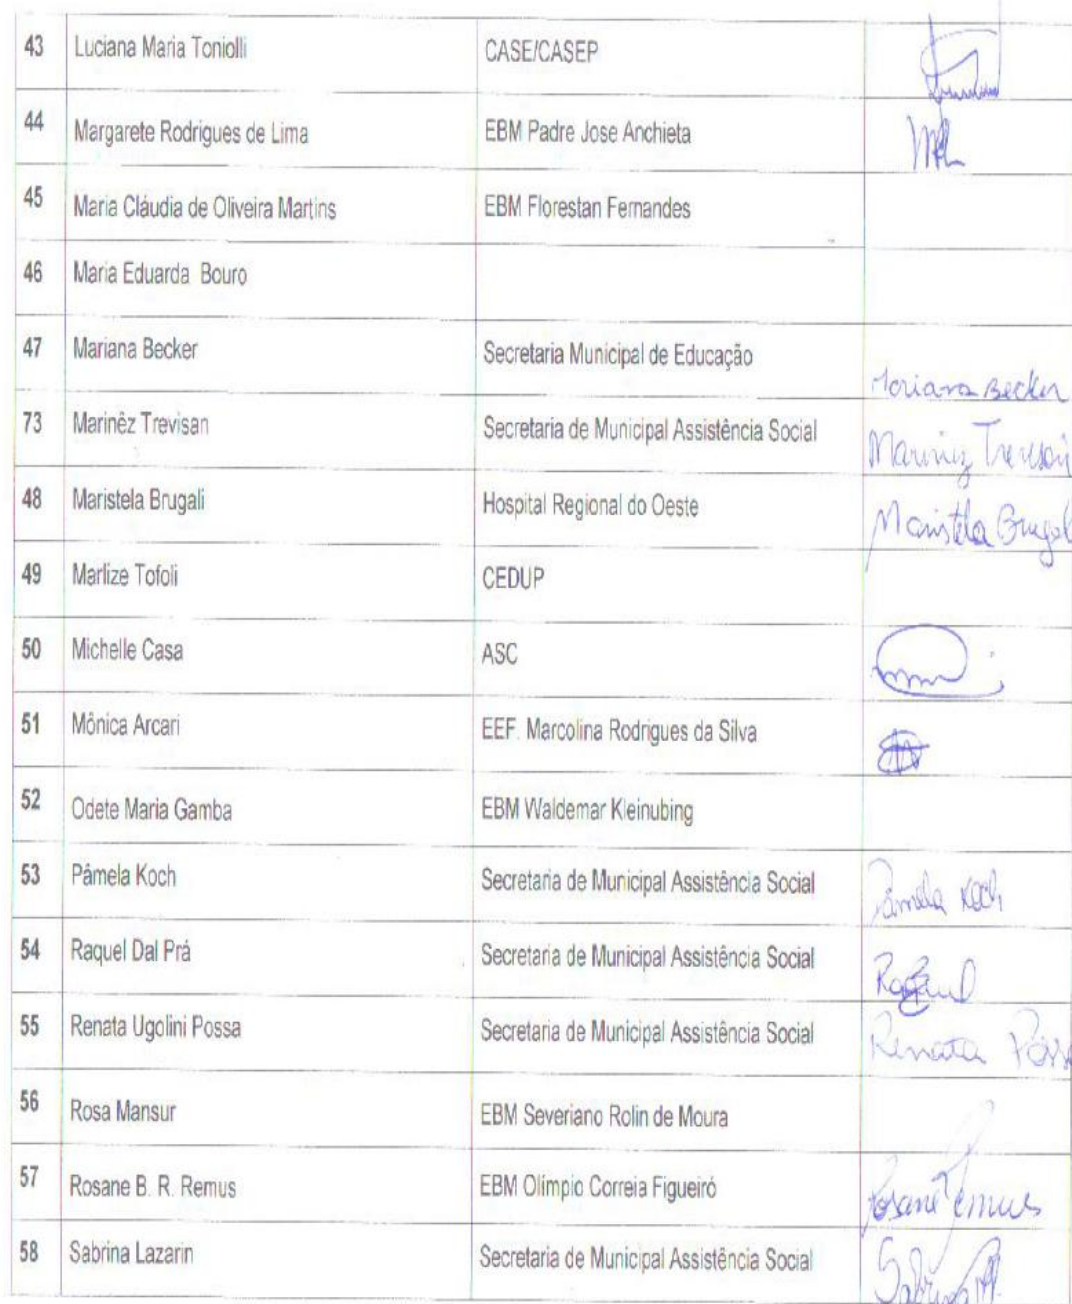 43 Luciana Maria Toniolli CASE/CASEP
44 Margarete Rodrigues de Lima EBM Padre Jose Anchieta
45 Maria Cláudia de Oliveira Martins EBM Florestan Fernandes
46 Maria Eduarda Bouro
47 Mariana Becker Secretaria Municipal de Educação Mariana Becker
73 Marinêz Trevisan Secretaria de Municipal Assistência Social Marinez Trevisan
48 Maristela Brugali Hospital Regional do Oeste Maristela Brugal
49 Marlize Tofoli CEDUP
50 Michelle Casa ASC
51 Mônica Arcari EEF. Marcolina Rodrigues da Silva
52 Odete Maria Gamba EBM Waldemar Kleinubing
53 Pâmela Koch Secretaria de Municipal Assistência Social Pamela Koch
54 Raquel Dal Prá Secretaria de Municipal Assistência Social Raquel
55 Renata Ugolini Possa Secretaria de Municipal Assistência Social Renata Poss
56 Rosa Mansur EBM Severiano Rolin de Moura
57 Rosane B. R. Remus EBM Olímpio Correia Figueiró Rosane Remus
58 Sabrina Lazarin Secretaria de Municipal Assistência Social Sabrina